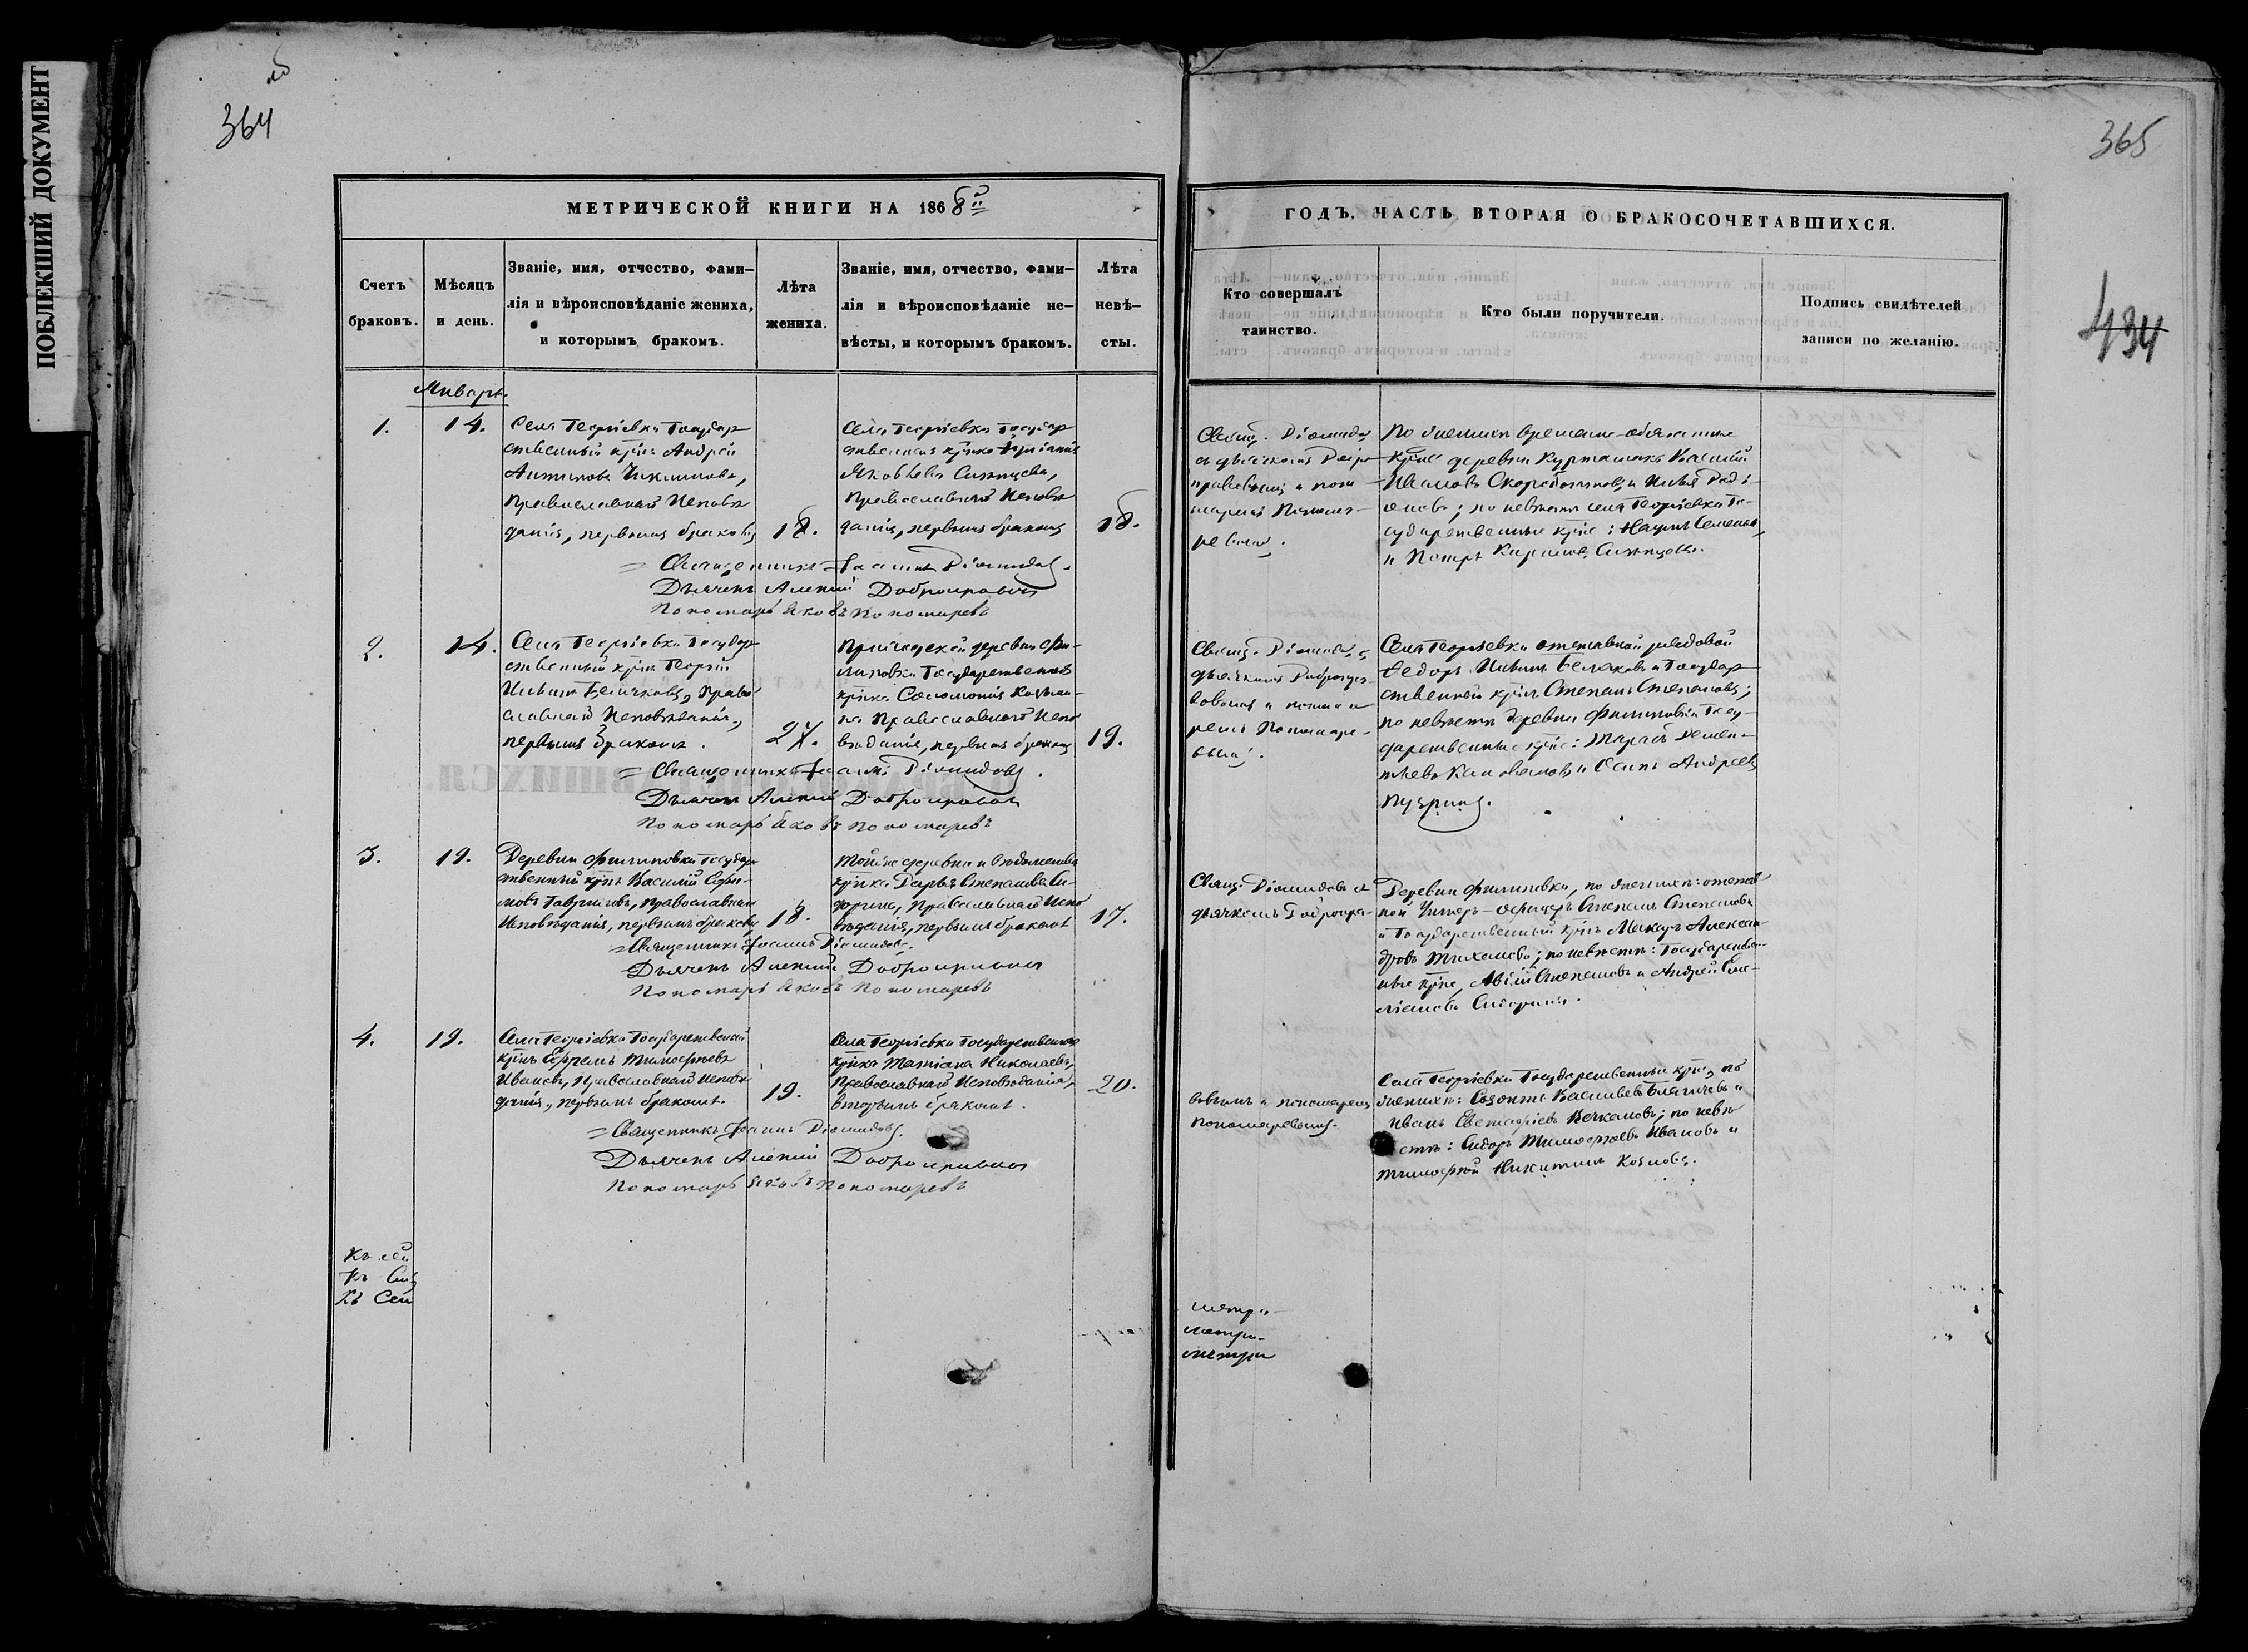 ПОБЛЕКШИЙ ДОКУМЕНТ
364
МЕТРИЧЕСКОЙ КНИГИ НА 1868й
Счетъ браковъ.
Мѣсяцъ и день.
Званіе, имя, отчество, фами-
лія и вѣроисповѣданіе жениха,
и которымъ бракомъ.
Лѣта жениха.
Званіе, имя, отчество, фами-
лія и вѣроисповѣданіе не-
вѣсты, и которымъ бракомъ.
Лѣта невѣ-
сты.
Январь.
1.
14.
Села Георгіевки Государ
ственный кр͠нъ Андрей
Антиповъ
Православнаго Исповѣ
данія, первымъ бракомъ
18.
Села Георгіевки Государ
ственная
Яковлева
Православнаго Исповѣ
данія, первымъ бракомъ
18.
Священникъ Іоаннъ Діомидовъ.
Дьячекъ Алексій Добронравовъ
Пономарь Яковъ Пономаревъ
2.
14.
Села Георгіевки Государ
ственный кр͠нъ Георгій
Ильинъ Беляковъ, Право
славнаго Исповѣданія,
первымъ бракомъ.
27.
Приходской деревни Фи-
липовки Государственная
кр͠нка Соломонія Козьми-
на Православнаго Испо
вѣданія, первымъ бракомъ
19.
Священникъ Іоаннъ Діомидовъ.
Дьячекъ Алексій Добронравовъ
Пономарь Яковъ Пономаревъ
3.
19.
Деревни Филиповки Государ
ственный кр͠нъ Василій Ефи-
мовъ Гавриловъ, Православнаго
Исповѣданія, первымъ бракомъ
18.
Той же деревни и вѣдомства
кр͠нка Дарья Степанова Си-
дорина, Православнаго Испо
вѣданія, первымъ бракомъ
17.
Священникъ Іоаннъ Діомидовъ.
Дьячекъ Алексій Добронравовъ
Пономарь Яковъ Пономаревъ
4.
19.
Села Георгіевки Государственный
кр͠нъ Ефремъ Тимофѣевъ
Ивановъ, Православнаго Исповѣ
данія, первымъ бракомъ.
19.
Села Георгіевки Государственная
кр͠нка Татіана Николаева,
Православнаго Исповѣданія,
вторымъ бракомъ.
20.
Священникъ Іоаннъ Діомидовъ.
Дьячекъ Алексій Добронравовъ
Пономарь Яковъ Пономаревъ
Къ сей
Къ Сей
Къ Сей
365
434
ГОДЪ. ЧАСТЬ ВТОРАЯ О БРАКОСОЧЕТАВШИХСЯ.
Кто совершалъ
таинство.
Кто были поручители.
Подпись свидѣтелей
записи по желанію.
Свящ. Діомидовъ
съ дьячкомъ Добро-
нравовымъ и поно-
маремъ Понома-
ревымъ.
По женихѣ временно-обязанные
кр͠не деревни Василій
Ивановъ и Илья Роді-
оновъ; по невѣстѣ села Георгіевки Го-
сударственные кр͠не: Наумъ Семеновъ,
и Петръ
Свящ. Діомидовъ съ
дьячкомъ Добронра-
вовымъ и понома-
ремъ Пономаре-
вымъ.
Села Георгіевки отставной рядовой
Ѳедоръ Ильинъ Беляковъ и Государ-
ственный кр͠нъ Степанъ Степановъ;
по невѣстѣ деревни Филиповки Госу-
дарственные кр͠не: Тарасъ Демен-
тьевъ и Осипъ Андреевъ
Свящ. Діомидовъ съ
дьячкомъ Добронра-
Деревни Филиповки, по женихѣ: отстав-
ной Унтеръ-офицеръ Степанъ Степановъ
и Государственный кр͠нъ Макаръ Алексан-
дровъ по невѣстѣ: Государствен-
ные кр͠не, Степановъ и Андрей Еме-
ліановъ Сидорины.
вовымъ и пономаремъ
Пономаревымъ.
Села Георгіевки Государственные кр͠не, по
женихѣ: Созонтъ Васильевъ и
Иванъ Евстафіевъ по невѣ
стѣ: Сидоръ Тимофѣевъ Ивановъ и
Тимофѣй Никитинъ Козловъ.
метри-
метри-
метри